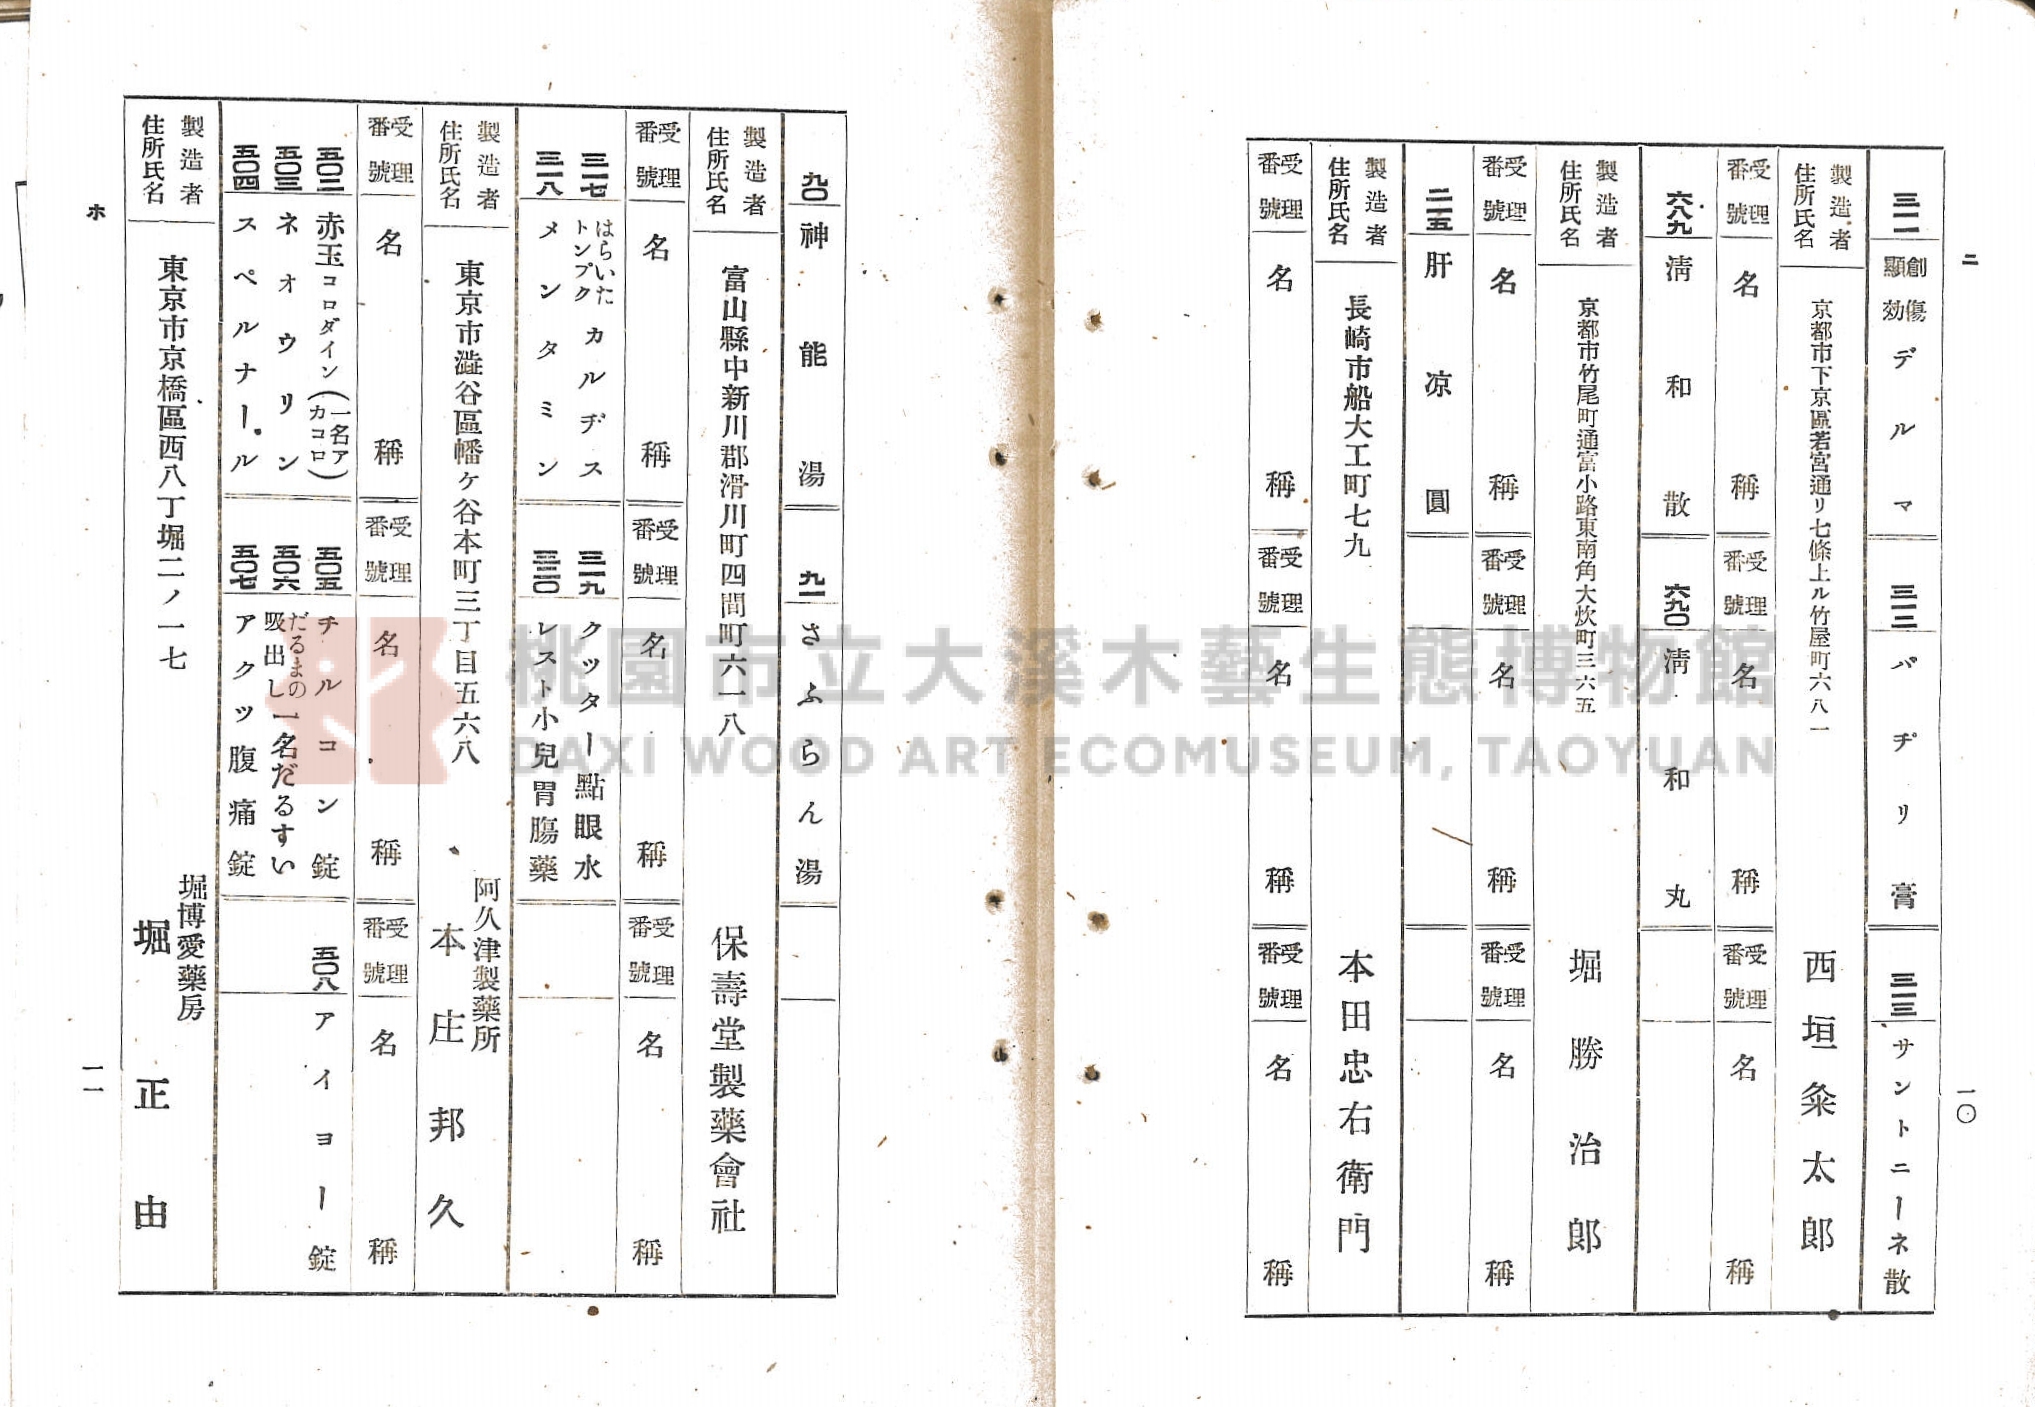 ニ
一〇
三一一
創傷顯効 デルマ
三一二
バヂリ膏
三一三
サントニーネ散
製造者住所氏名
京都市下京區若宮通リ七條上ル竹屋町六八一
西垣粂太郎
受理番號
名稱
受理番號
名稱
受理番號
名稱
六八九
淸和散
六九〇
淸和丸
製造者住所氏名
京都市竹尾町通富小路東南角大炊町三六五
堀勝治郎
受理番號
名稱
受理番號
名稱
受理番號
名稱
二一五
肝凉圓
製造者住所氏名
長崎市船大工町七九
本田忠右衛門
受理番號
名稱
受理番號
名稱
受理番號
名稱
九〇
神能湯
九一
さふらん湯
製造者住所氏名
富山縣中新川郡滑川町四間町六一八
保壽堂製藥會社
受理番號
名稱
受理番號
名稱
受理番號
名稱
三一七
はらいたトンプク カルヂス
三一九
クッター點眼水
三一八
メンタミン
三二〇
レスト小兒胃膓藥
製造者住所氏名
東京市澁谷區幡ヶ谷本町三丁目五六八
阿久津製藥所
本庄邦久
受理番號
名稱
受理番號
名稱
受理番號
名稱
五〇二
赤玉コロダイン(一名アカコロ)
五〇五
チルコン錠
五〇八
アイヨー錠
五〇三
ネオウリン
五〇六
だるまの吸出し一名だるすい
五〇四
スペルナール
五〇七
アクツ腹痛錠
製造者住所氏名
東京市京橋區西八丁堀二ノ一七
堀博愛藥房
堀正由
ホ
一一
桃園市立大溪木藝生態博物館
DAXI WOOD ART ECOMUSEUM, TAOYUAN